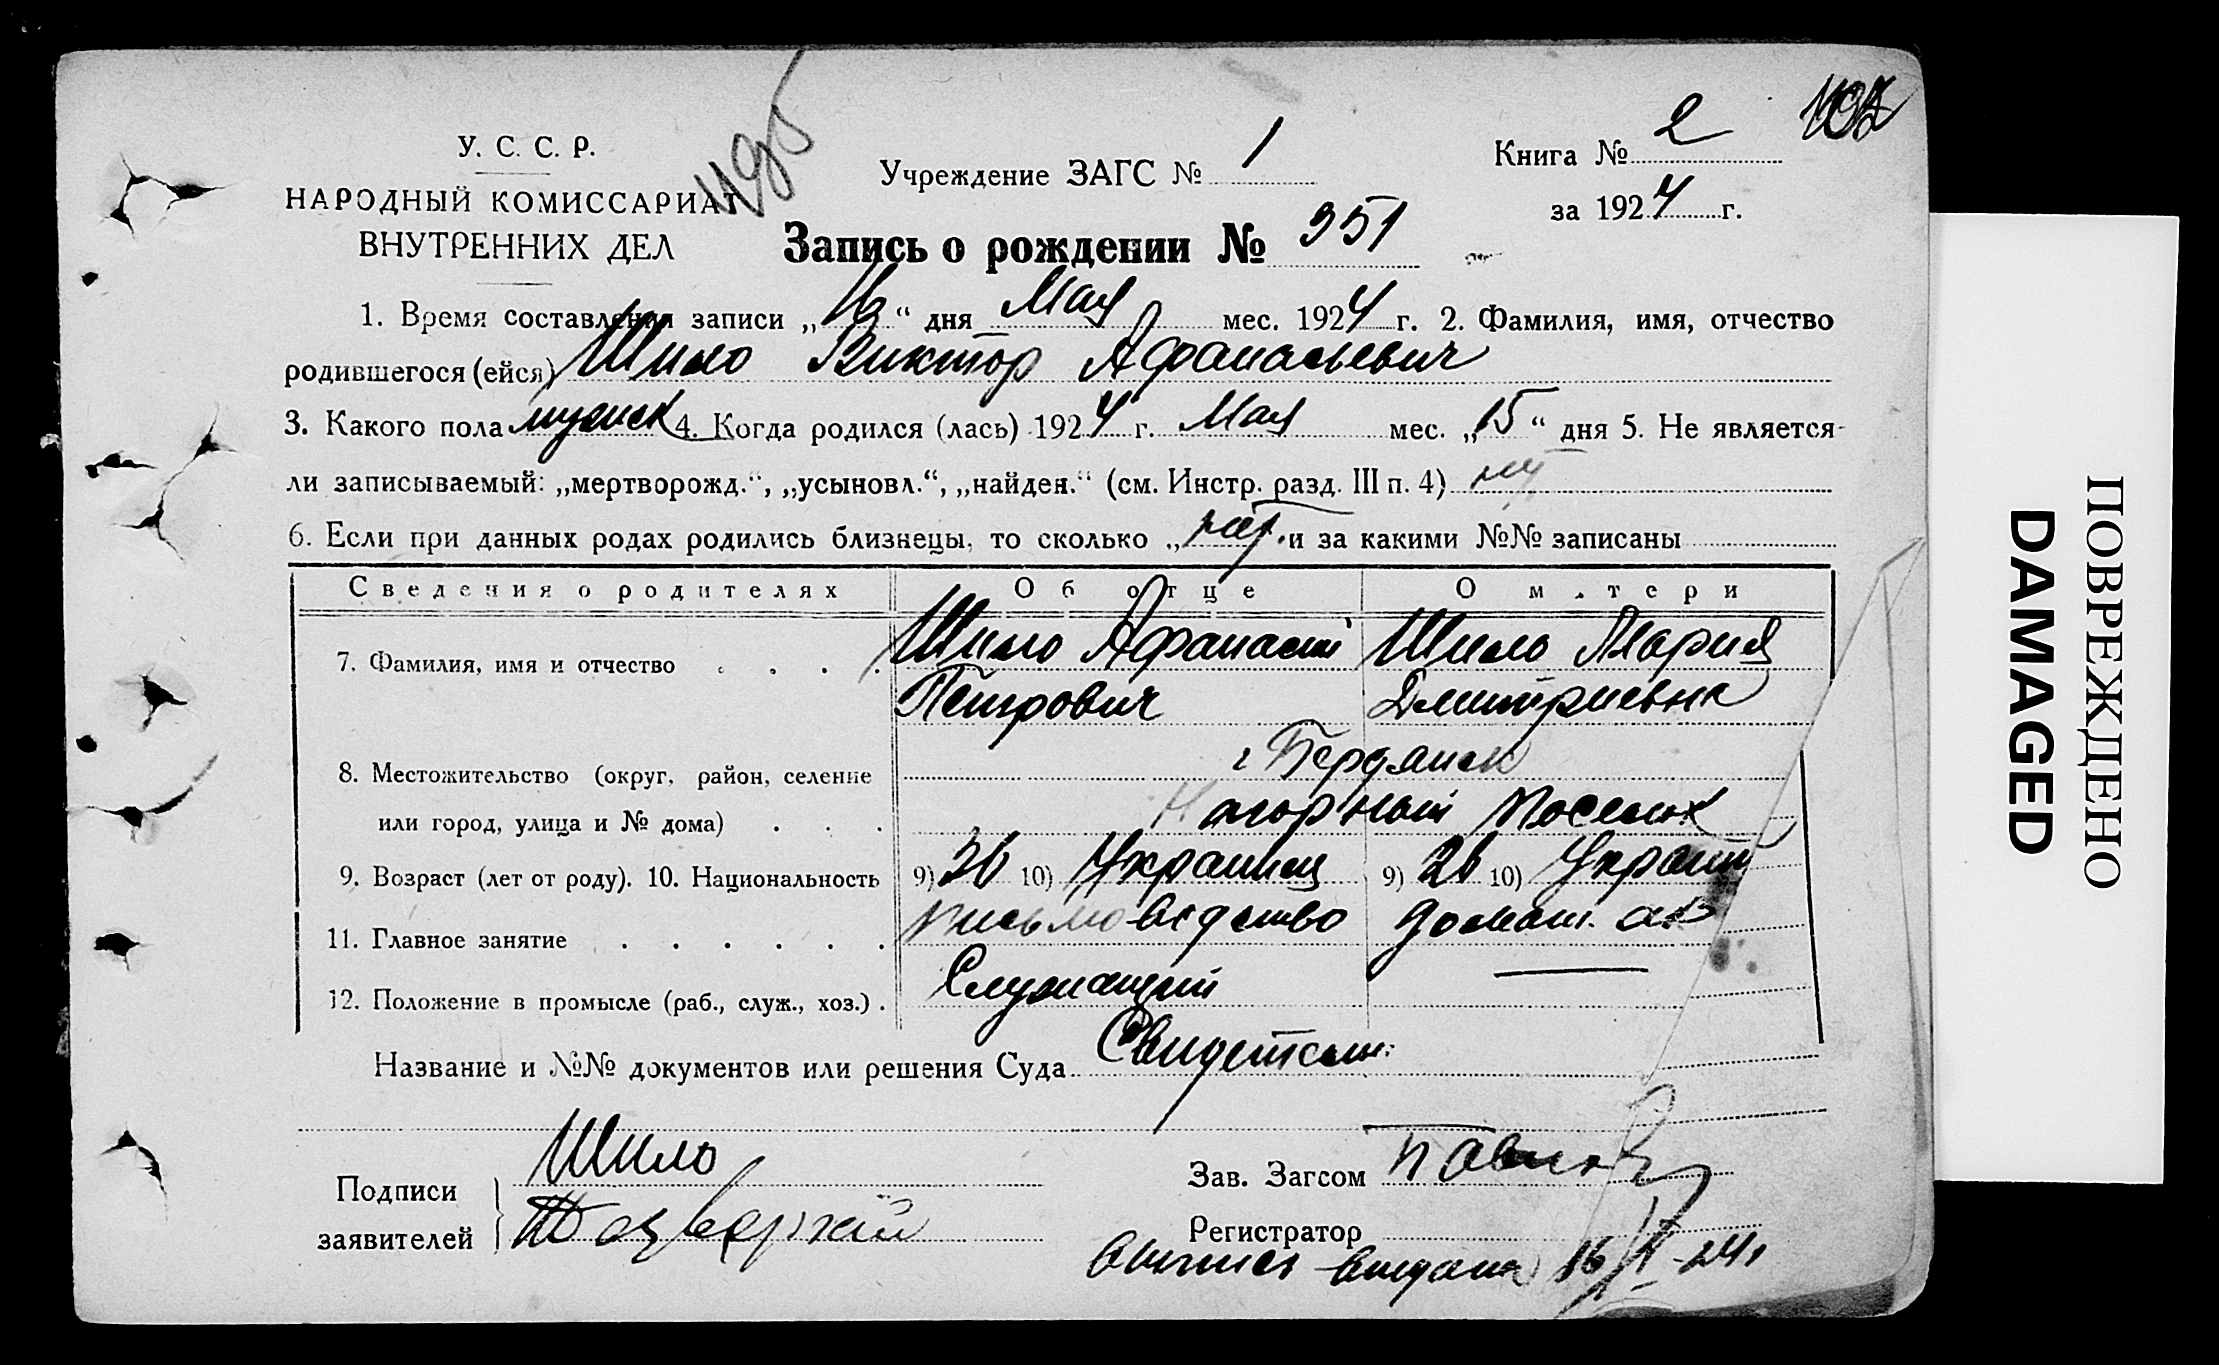 У. С. С. Р.
НАРОДНЫЙ КОМИССАРИАТ
ВНУТРЕННИХ ДЕЛ
Учреждение ЗАГС № 1
Книга № 2
за 1924 г.
Запись о рождении № 351
1. Время составления записи „16“ дня Мая мес. 1924 г. 2. Фамилия, имя, отчество
родившегося (ейся) Шило Виктор Афанасьевич
3. Какого пола мужск 4. Когда родился (лась) 1924 г. Мая мес. „15“ дня 5. Не является
ли записываемый: „мертворожд.“, „усыновл.“, „найден.“ (см. Инстр. разд. III п. 4) нет
6. Если при данных родах родились близнецы, то сколько „ нет. и за какими №№ записаны
Сведения о родителях Об отце О матери
7. Фамилия, имя и отчество . . . . Шило Афанасий Шило Мария
Петрович Дмитриевна
8. Местожительство (округ, район, селение г Бердянск
или город, улица и № дома) . . . Нагорный поселок
9. Возраст (лет от роду). 10. Национальность 9) 36 10) Украинец 9) 26 10) Украин
11. Главное занятие . . . . . . письмоводство домаш. хоз
12. Положение в промысле (раб., служ., хоз.) . Служащий —
Название и №№ документов или решения Суда Свидетели:
Подписи Шило
заявителей
Зав. Загсом Павлов
Регистратор
выпись выдана 16/V-24г
ПОВРЕЖДЕНО
DAMAGED